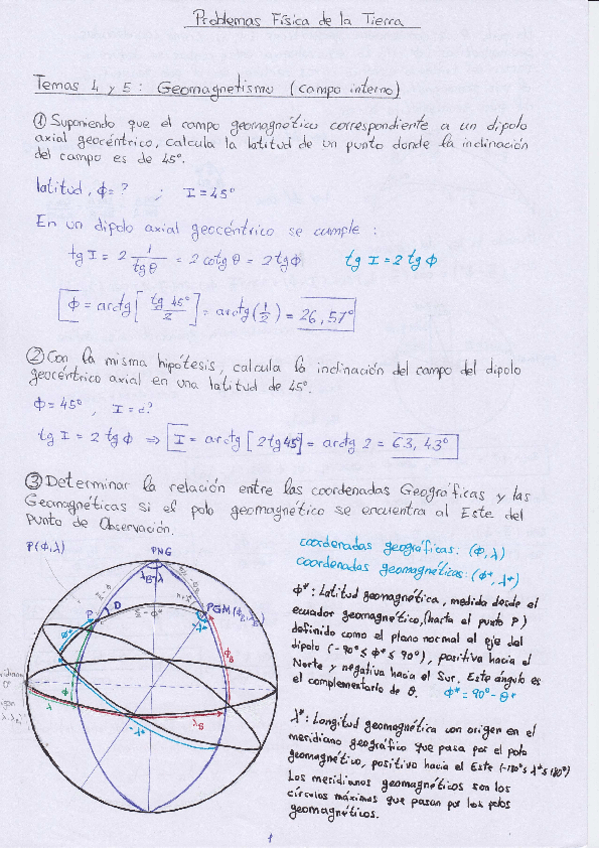 Problemas Física de la Tierra
Temas 4 y 5: Geomagnetismo (campo interno)
① Suponiendo que el campo geomagnético correspondiente a un dipolo
axial geocéntrico, calcula la latitud de un punto donde la inclinación
del campo es de 45º.
latitud, ϕ=? ; I=45º
En un dipolo axial geocéntrico se cumple:
tg I = 2 1/tgθ = 2 cotgθ = 2tgϕ tg I = 2 tgϕ
ϕ = arctg[tg 45º/2] = arctg(1/2) = 26,57º
② Con la misma hipótesis, calcula la inclinación del campo del dipolo
geocéntrico axial en una latitud de 45º.
ϕ=45º, I=¿?
tg I = 2 tgϕ ⇒ I = arctg[2tg45] = arctg 2 = 63,43º
③ Determinar la relación entre las coordenadas Geográficas y las
Geomagnéticas si el polo geomagnético se encuentra al Este del
Punto de Observación.
P(ϕ,λ)
PNG
P
D
PGM(ϕB,λB)
ϕB
ϕ
λ
λB
-λ*
coordenadas geográficas: (ϕ,λ)
coordenadas geomagnéticas: (ϕ*,λ*)
ϕ*: Latitud geomagnética, medida desde el
ecuador geomagnético, (hasta el punto P)
definido como el plano normal al eje del
dipolo (-90º≤ϕ*≤90º), positiva hacia el
Norte y negativa hacia el Sur. Este ángulo es
el complementario de θ. ϕ*=90º-θ*
λ*: Longitud geomagnética con origen en el
meridiano geográfico que pasa por el polo
geomagnético, positivo hacia el Este (-180º≤λ*≤180º)
Los meridianos geomagnéticos son los
círculos máximos que pasan por los polos
geomagnéticos.
1